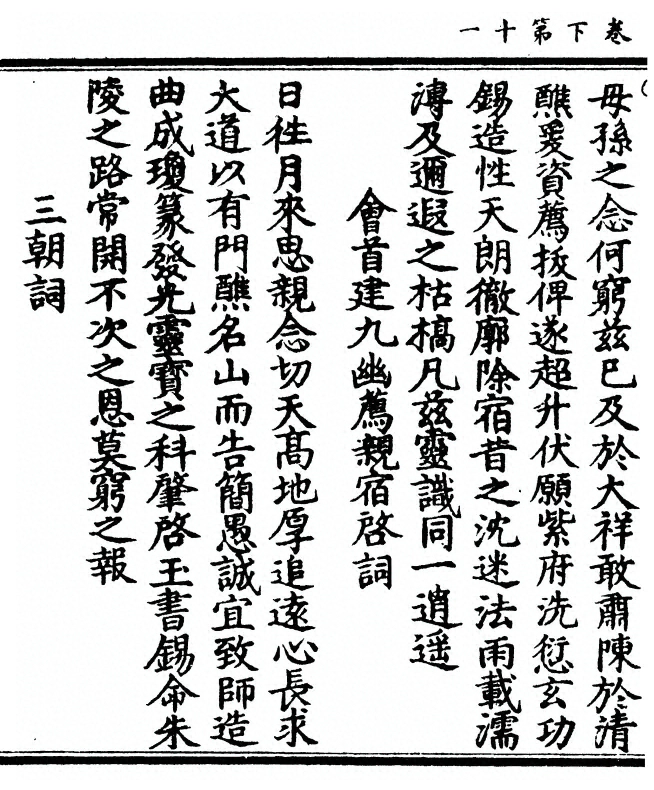 卷下第十一
母孫之念何窮兹巳及於大祥敢肅陳於清
醮爰資薦㧞俾遂超升伏願紫府洗愆玄功
錫造性天朗徹廓除宿昔之沈迷法雨載濡
溥及邇遐之枯槁凡兹靈識同一逍遥
會首建九幽薦親宿啓詞
日徃月來思親念切天髙地厚追逺心長求
大道以有門醮名山而告簡愚誠宜致師造
曲成瓊篆發光靈寳之科肇啓玉書錫命朱
陵之路常開不次之恩莫窮之報
三朝詞